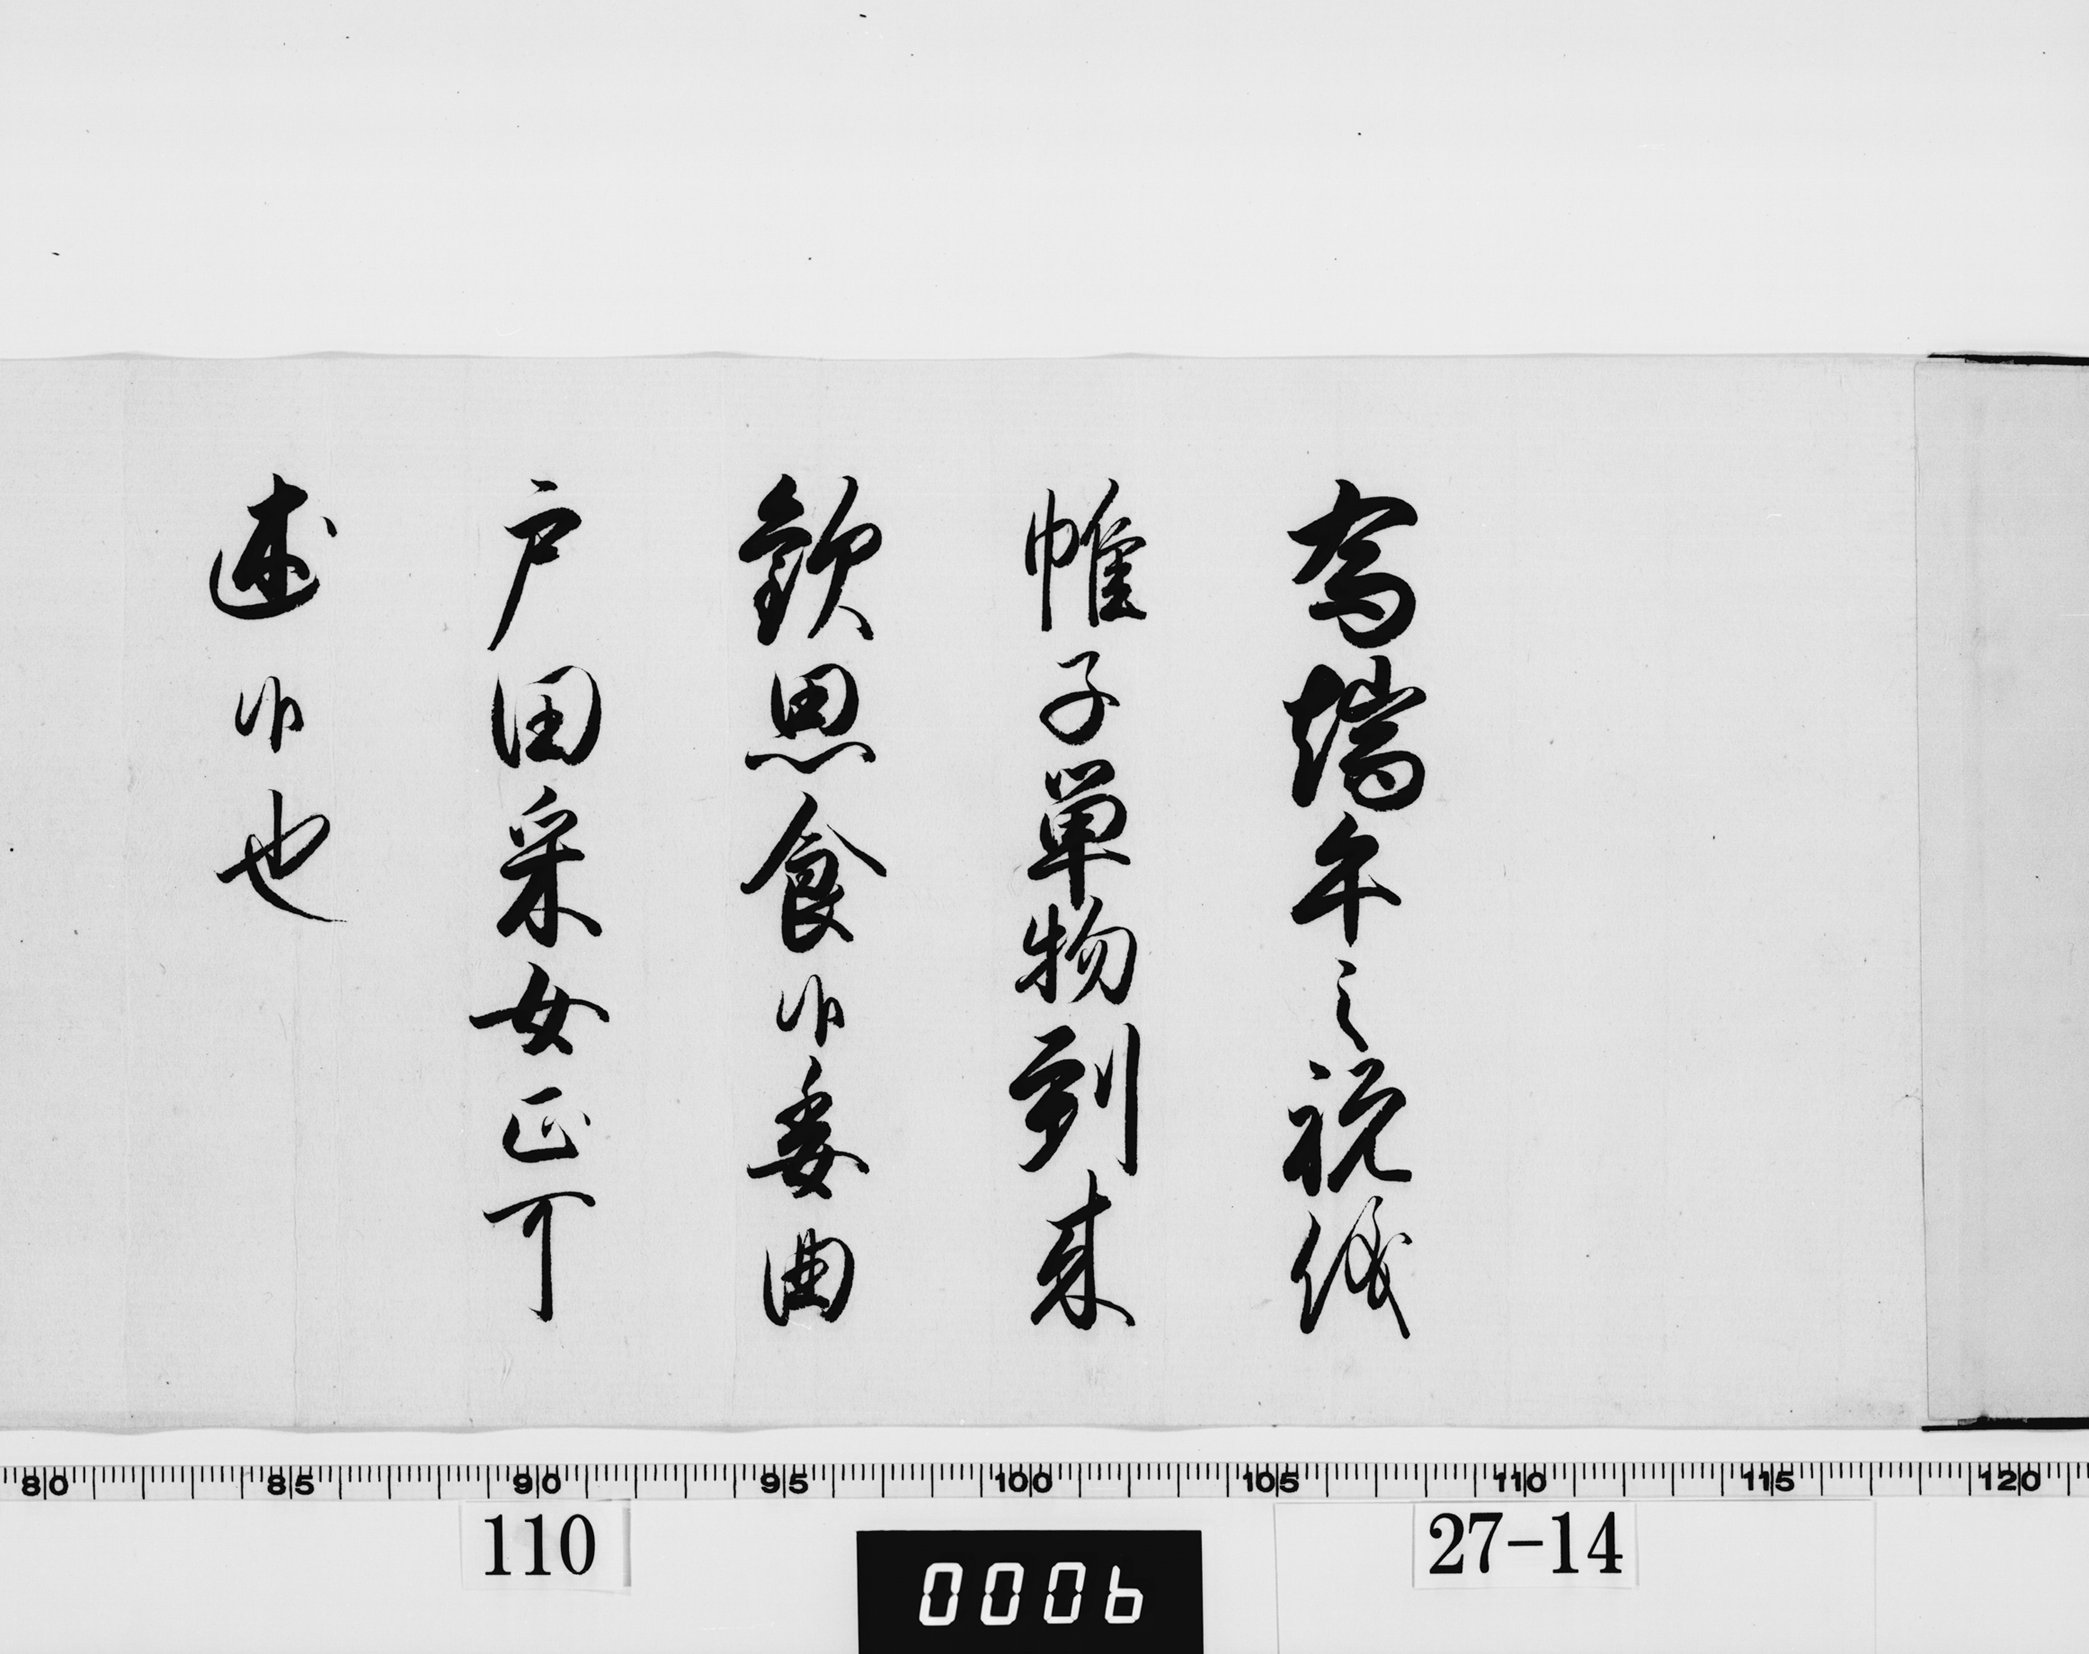 為端午之祝儀
帷子単物到来
歓思食候委曲
戸田采女正可
述候也
80 85 90 95 100 105 110 115 120
110
0006
27-14